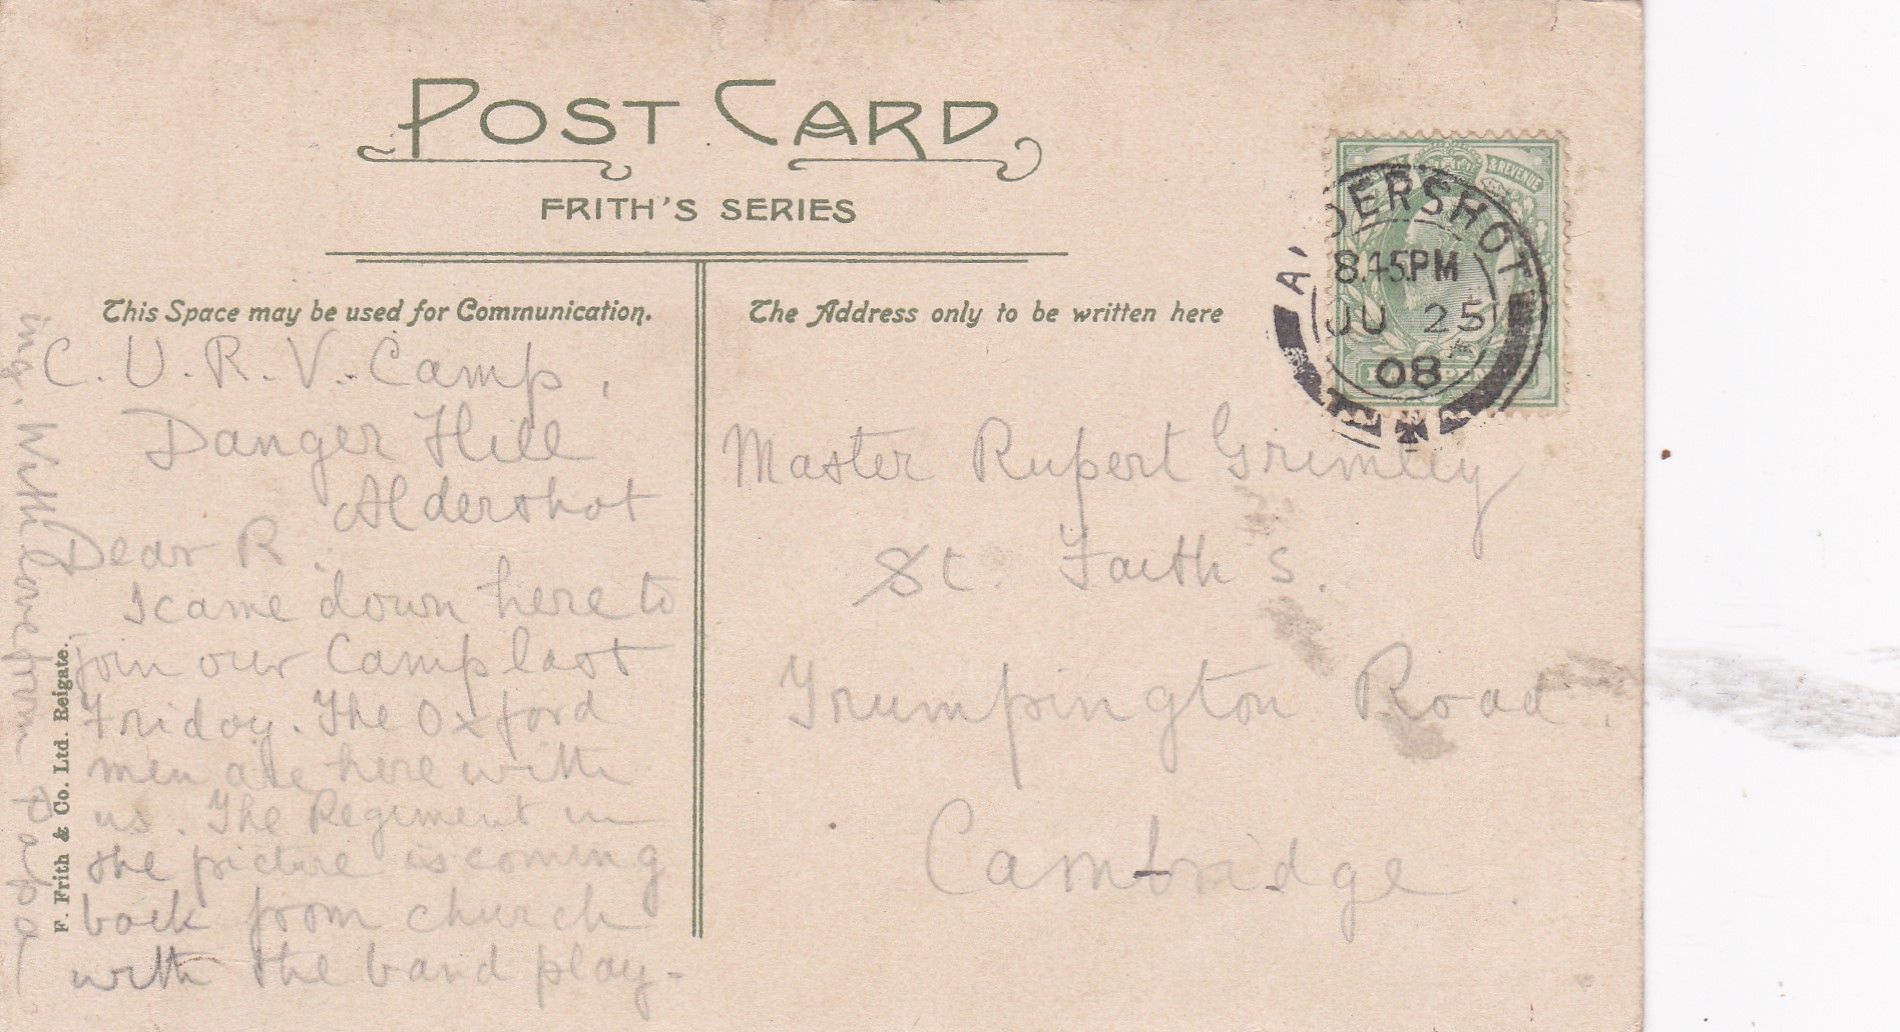 POST CARD
FRITH'S SERIES
This Space may be used for Communication.
The Address only to be written here
C. U. R. V. Camp,
Danger Hill
Aldershot
Dear R.
I came down here to
join our Camp last
Friday. The Oxford
men are here with
us. The Regiment in
the picture is coming
back from church
with the band play-
ing. With love from Papa
F. Frith & Co. Ltd. Reigate.
Master Rupert Grimley
St. Faith's.
Trumpington Road.
Cambridge.
& REVENUE
ALDERSHOT
8.45PM
JU 25
08